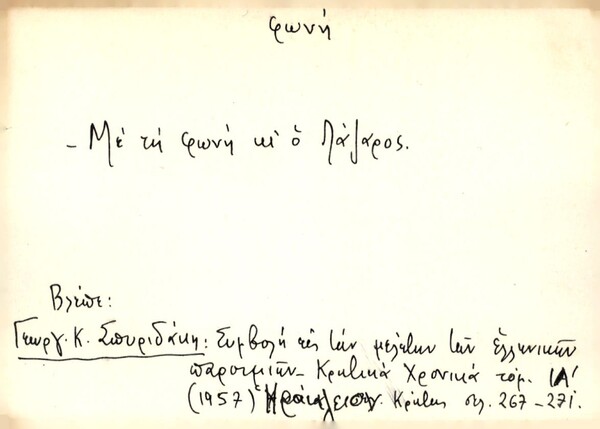 φωνή
- Μὲ τὴ φωνὴ κι ὁ Λάζαρος.
Βλέπε:
Γεωργ. Κ. Σπυριδάκη: Συμβολὴ εἰς τὴν μελέτην τῶν ἑλληνικῶν
παροιμιῶν - Κρητικὰ Χρονικὰ τόμ. ΙΑ'
(1957) Ἡράκλειον Κρήτης σελ. 267-271.